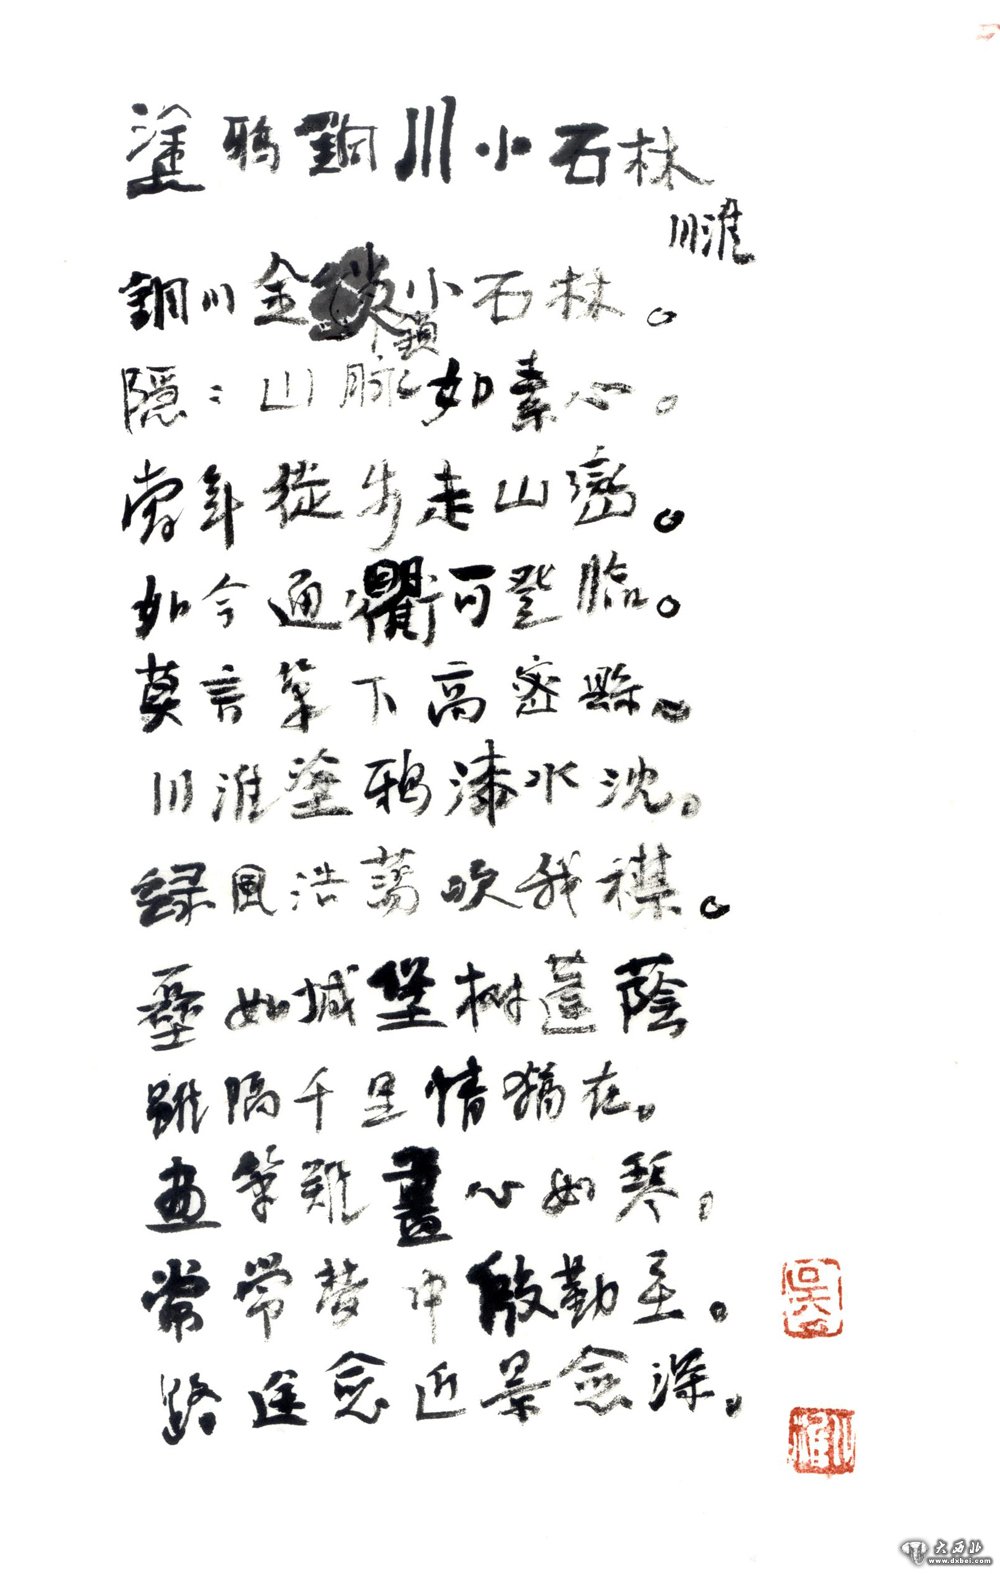 塗鴉銅川小石林
川淮
銅川金鎖小石林。
隱〻山脉如素心。
當年徒步走山巒。
如今通衢可登臨。
莫言筆下高密縣、
川淮塗鴉漆水沈。
綠風浩蕩吹我襟。
壘如城堡樹蓬蔭
雖隔千里情猶在。
画筆難畫心如琴。
常常梦中殷勤至。
路途愈近景愈深。
吳
川淮
大西北
www.dxbei.com